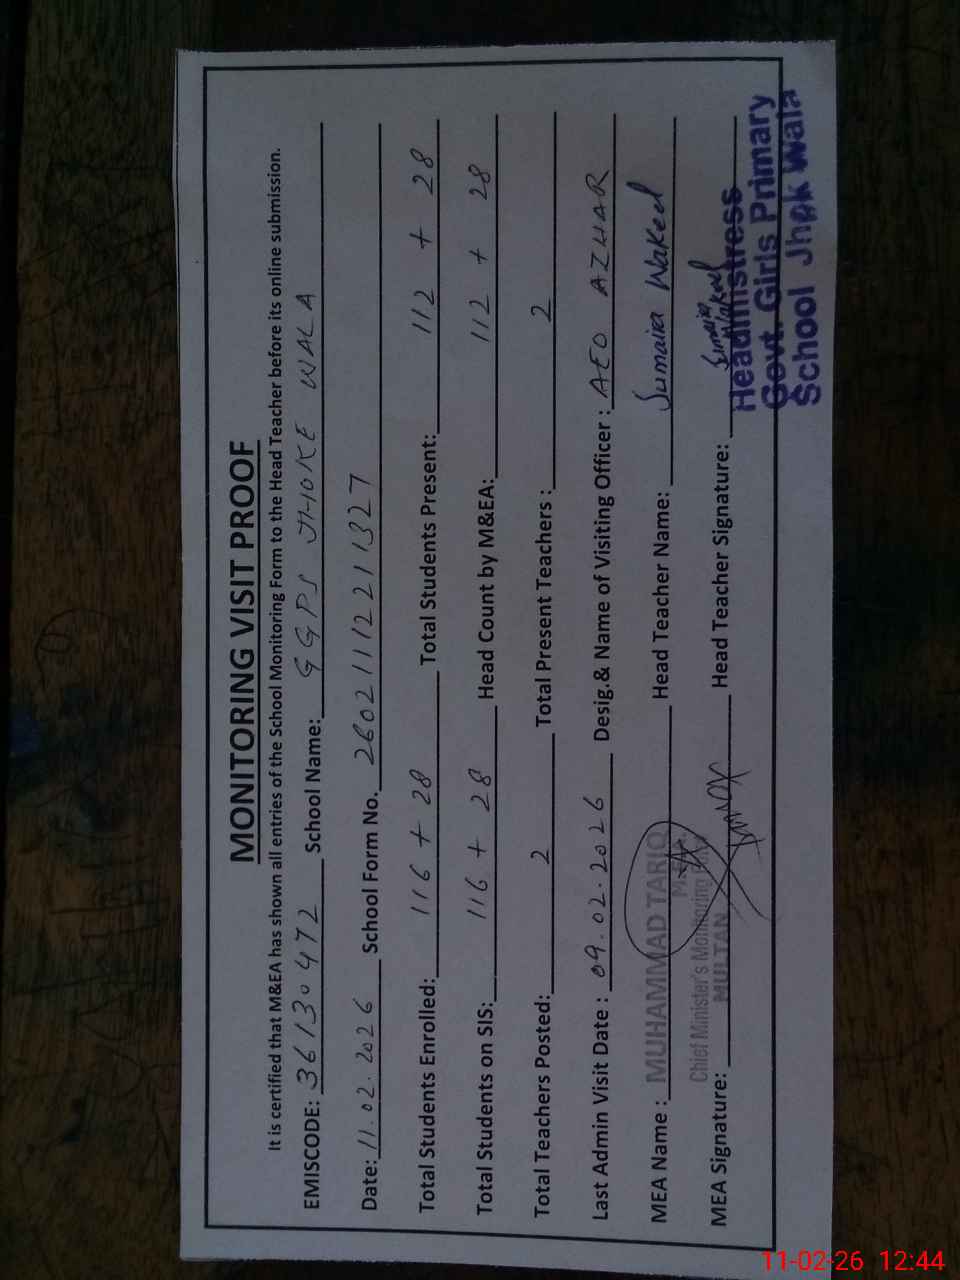 MONITORING VISIT PROOF
It is certified that M&EA has shown all entries of the School Monitoring Form to the Head Teacher before its online submission.
EMISCODE: 36130472 School Name: GGPS JHOKE WALA
Date: 11.02.2026 School Form No. 26021111221327
Total Students Enrolled: 116 + 28 Total Students Present: 112 + 28
Total Students on SIS: 116 + 28 Head Count by M&EA: 112 + 28
Total Teachers Posted: 2 Total Present Teachers : 2
Last Admin Visit Date : 09.02.2026 Desig,& Name of Visiting Officer : AEO AZHAR
MEA Name : MUHAMMAD TARIQ Head Teacher Name: Sumaira Wakeel
M.E.A.
Chief Minister's Monitoring
MULTAN
MEA Signature: Head Teacher Signature: Sumaira Wakeel
Headmistress
Govt. Girls Primary
School Jhok Wala
11-02-26 12:44